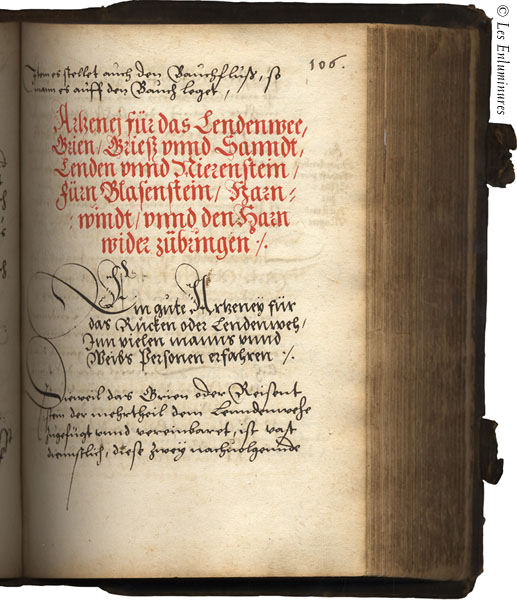 106.
Item es stellet auch den Bauchfluß, so
man es auff den Bauch leget,
Artzenej für das Lendenwee,
Grien, Grieß vnnd Sanndt,
Lenden vnnd Nierenstein,
fürn Blasenstein, Harn=
windt, vnnd den Harn
wider zübringen ⁒.
Ein gute Artzeney für
das Rucken oder Lendenweh,
Inn vielen manns vnnd
Weibs Personen erfahren ⁒.
Dieweil das Grien oder Reisent
stein der mehrtheil dem Lenndenwehe
zugefügt vnnd vereinbaret, ist vast
dienstlich, diese zwey nachuolgennde
© Les Enluminures